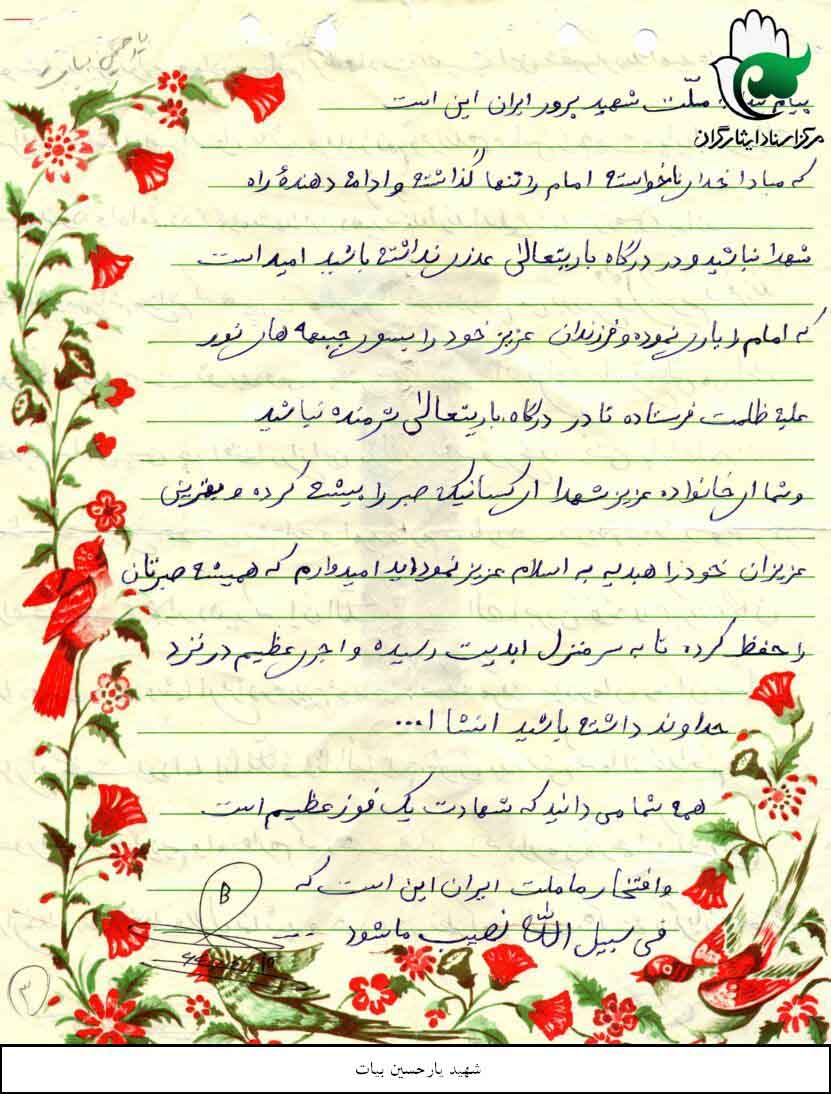 یارحسین بیات
مرکز اسناد ایثارگران
پیام ملّت شهید پرور ایران این است
که مبادا خدای ناخواسته امام را تنها گذاشته و ادامه دهندهٔ راه
شهدا نباشید و در درگاه باریتعالی عذری نداشته باشید امید است
که امام را یاری نموده و فرزندان عزیز خود را بسوی جبهه های نور
علیه ظلمت فرستاده تا در درگاه باریتعالی شرمنده نباشید
و شما ای خانواده عزیز شهدا ای کسانیکه صبر را پیشه کرده و بهترین
عزیزان خود را هدیه به اسلام عزیز نموداید امیدوارم که همیشه صبرتان
را حفظ کرده تا به سر منزل ابدیت رسیده و اجری عظیم در نزد
خداوند داشته باشید انشا ا...
همه شما می دانید که شهادت یک فوز عظیم است
و افتخار ما ملت ایران این است که
فی سبیل الله نصیب ما شود
B
۳
شهید یارحسین بیات